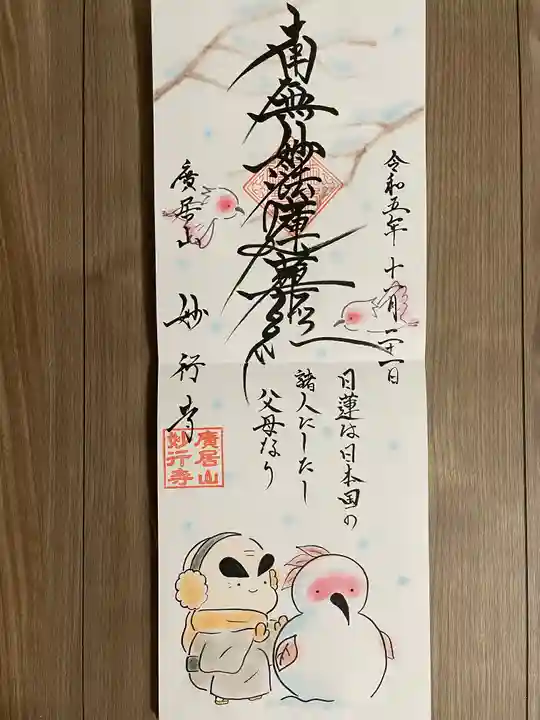 令和五年十一月二十一日
南無妙法蓮華経
廣居山
妙行寺
日蓮は日本国の
諸人にしたし
父母なり
廣居山
妙行寺